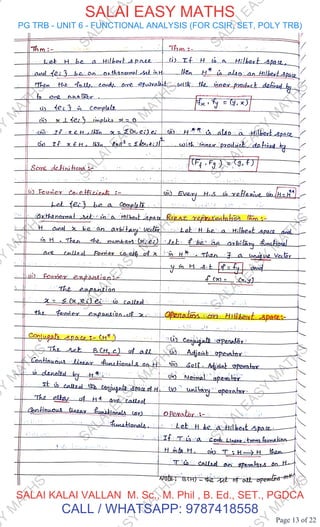 SALAI EASY MATHS
PG TRB - UNIT 6 - FUNCTIONAL ANALYSIS (FOR CSIR, SET, POLY TRB)
Thm:-
Let H be a Hilbert space
and {ei} be an orthonormal set in H
Then the foll. conds are equivalent
to one another.
i) {ei} is complete
ii) x ⊥ {ei} implies x = 0
iii) If x ∈ H, then x = Σ(x, ei) ei
iv) If x ∈ H, then ||x||² = Σ|(x, ei)|²
Some definitions:-
(i) Fourier Co-efficient:-
Let {ei} be a Complete
Orthonormal set in a Hilbert space
H and x be an arbitrary vector
in H. Then the numbers (x, ei)
are called Fourier co.eff of x
(ii) Fourier expansion:-
The expansion
x = Σ(x, ei) ei is called
the Fourier expansion of x.
Conjugate space:- (H*)
The set B(H, C) of all
Continuous linear functionals on H
is denoted by H*.
It is called the conjugate space of H.
The elts of H* are called
Continuous linear functionals (or)
functionals.
Thm:-
(i) If H is a Hilbert space,
then H* is also an Hilbert space
with the inner product defined by
(fx, fy) = (y, x)
(ii) H** is also a Hilbert space
with inner product defined by
(Ff, Fg) = (g, f)
(iii) Every H.S is reflexive (ie) H = H**
Riesz representation thm:-
Let H be a Hilbert space and
let f be an arbitrary functional
in H*. Then ∃ a unique vector
y in H s.t f = fy and
f(x) = (x, y)
Operators on Hilbert space:-
(i) Conjugate operator
(ii) Adjoint operator
(iii) Self-Adjoint operator
(iv) Normal operator
(v) Unitary operator
Operator:-
Let H be a Hilbert space
If T is a cont. linear transformation
H into H. (ie) T: H → H then
T is called an operators on H.
Note: B(H) - the set of all operators on H
SALAI KALAI VALLAN M. Sc., M. Phil , B. Ed., SET., PGDCA
CALL / WHATSAPP: 9787418558
Page 13 of 22